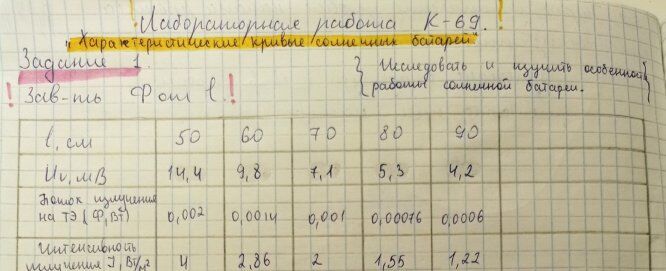 Лабораторная работа К-69.
"Характеристические кривые солнечных батарей"
Задание 1.
{ Исследовать и изучить особенности работы солнечной батареи. }
! Зав-ть Ф от l. !
l, см 50 60 70 80 90
Uv, мВ 14,4 9,8 7,1 5,3 4,2
Поток излучения
на ТЭ (Ф, Вт) 0,002 0,0014 0,001 0,00076 0,0006
Интенсивность
излучения J, Вт/м² 4 2,86 2 1,55 1,22